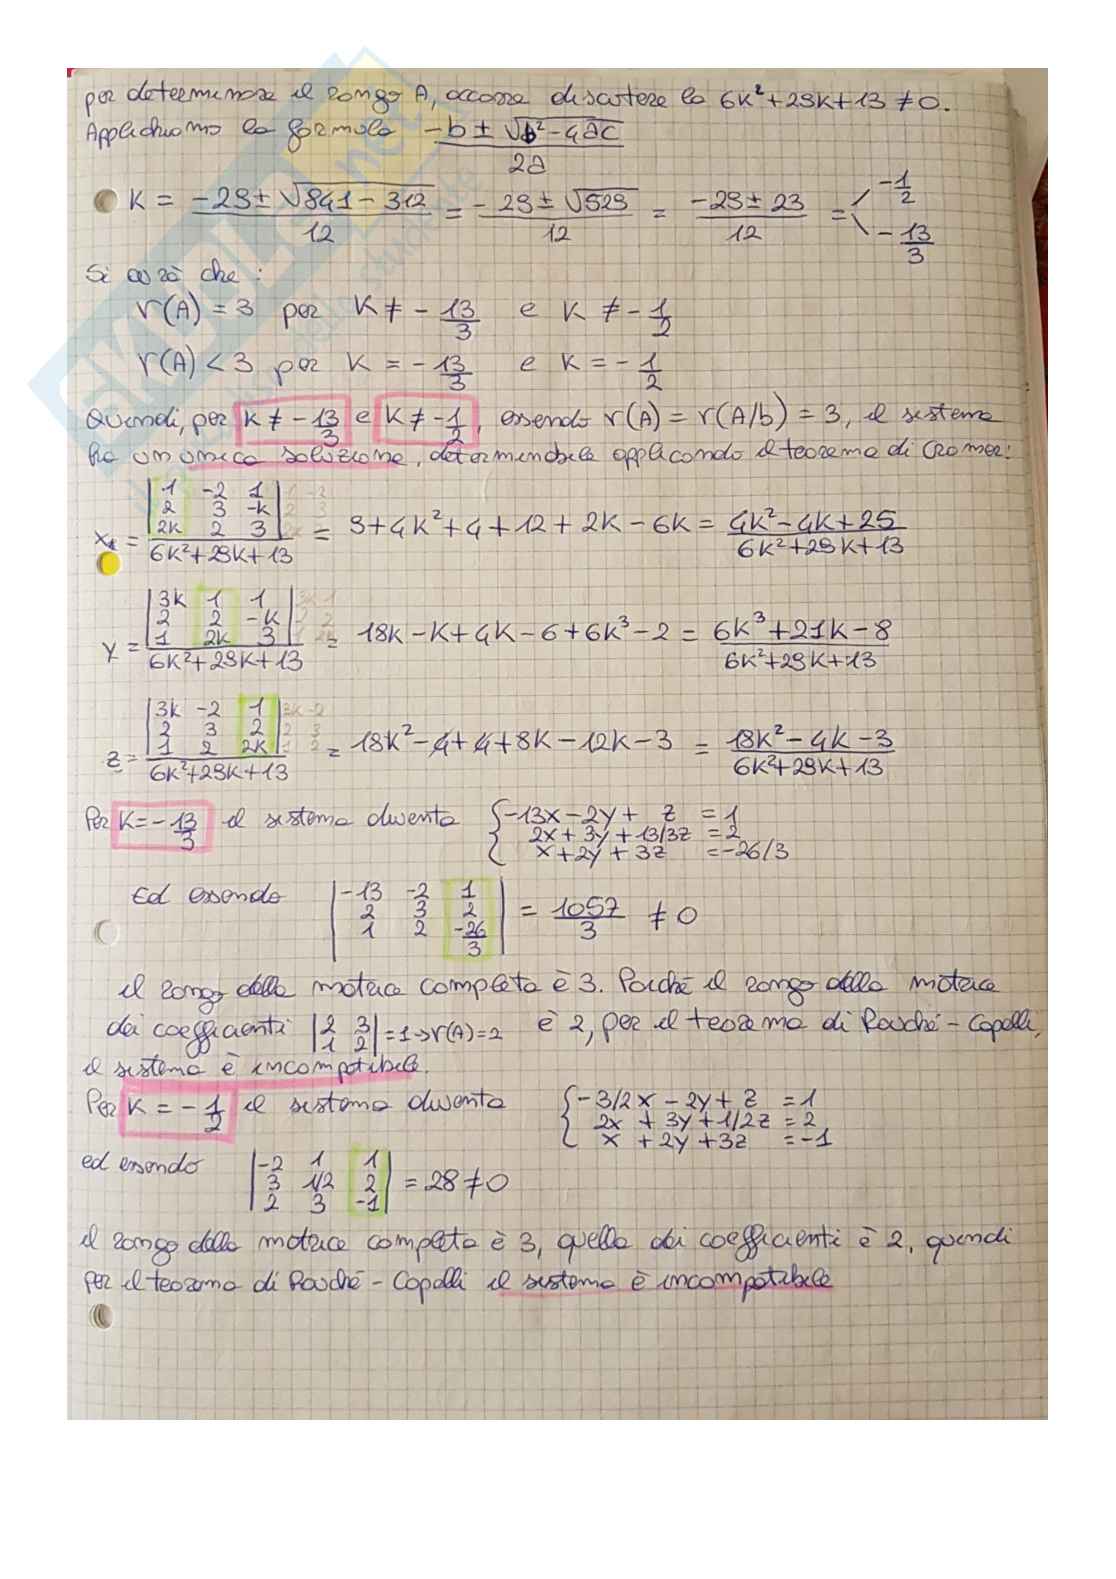 per determinare il rango A, occorre discutere la 6K²+29K+13 ≠ 0.
Applichiamo la formula (-b ± √(b²-4ac))/2a
K = (-29±√(841-312))/12 = (-29±√529)/12 = (-29±23)/12 = < -1/2 -13/3
Si avrà che :
r(A) = 3 per K ≠ -13/3 e K ≠ -1/2
r(A) < 3 per K = -13/3 e K = -1/2
Quindi, per K ≠ -13/3 e K ≠ -1/2, essendo r(A) = r(A/b) = 3, il sistema
ha un unica soluzione, determinabile applicando il teorema di Cramer:
|1 -2 1|
|2 3 -K|
|2K 2 3|
x = /(6K²+29K+13) = 9+4K²+4+12+2K-6K = (4K²-4K+25)/(6K²+29K+13)
|3K 1 1|
|2 2 -K|
|1 2K 3|
y = /(6K²+29K+13) = 18K-K+4K-6+6K³-2 = (6K³+21K-8)/(6K²+29K+13)
|3K -2 1|
|2 3 2|
|1 2 2K|
z = /(6K²+29K+13) = 18K²-4+4+8K-12K-3 = (18K²-4K-3)/(6K²+29K+13)
Per K = -13/3 il sistema diventa { -13x-2y+ z = 1
2x+3y+13/3z = 2
x+2y+3z = -26/3
Ed essendo |-13 -2 1|
|2 3 2| = 1057/3 ≠ 0
|1 2 -26/3|
il rango della matrice completa è 3. Poiché il rango della matrice
dei coefficienti |2 3| |1 2| =1→r(A)=2 è 2, per il teorema di Rouché-Capelli,
il sistema è incompatibile.
Per K = -1/2 il sistema diventa { -3/2x-2y+z = 1
2x+3y+1/2z = 2
x+2y+3z = -1
ed essendo |-2 1 1|
|3 1/2 2| = 28 ≠ 0
|2 3 -1|
il rango della matrice completa è 3, quella dei coefficienti è 2, quindi
per il teorema di Rouché-Capelli il sistema è incompatibile